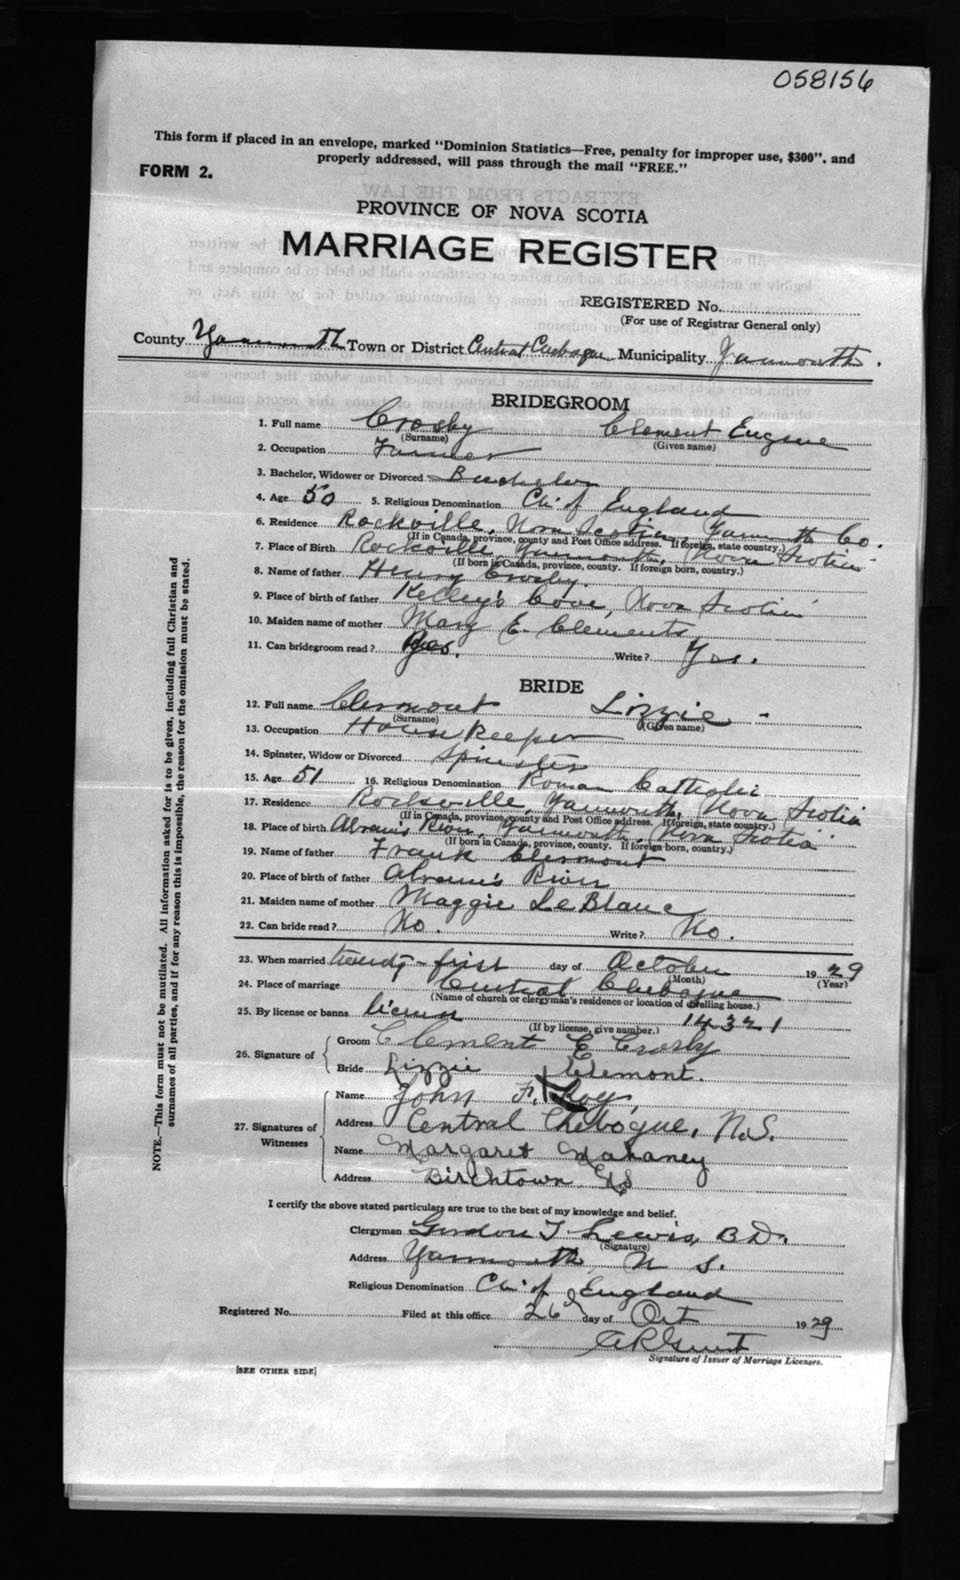 058156
This form if placed in an envelope, marked "Dominion Statistics—Free, penalty for improper use, $300", and
properly addressed, will pass through the mail "FREE."
FORM 2.
PROVINCE OF NOVA SCOTIA
MARRIAGE REGISTER
REGISTERED No.
(For use of Registrar General only)
County Yarmouth Town or District Central Chebogue Municipality Yarmouth.
BRIDEGROOM
1. Full name Crosby Clement Eugene
(Surname) (Given name)
2. Occupation Farmer
3. Bachelor, Widower or Divorced Bachelor
4. Age 50 5. Religious Denomination Ch. of England
6. Residence Rockville, Nova Scotia, Yarmouth Co.
(If in Canada, province, county and Post Office address. If foreign, state country.)
7. Place of Birth Rockville, Yarmouth, Nova Scotia
(If born in Canada, province, county. If foreign born, country.)
8. Name of father Henry Crosby.
9. Place of birth of father Kelley's Cove, Nova Scotia
10. Maiden name of mother Mary E. Clements
11. Can bridegroom read? Yes. Write? Yes.
BRIDE
12. Full name Clermont Lizzie -
(Surname) (Given name)
13. Occupation House keeper
14. Spinster, Widow or Divorced Spinster
15. Age 51 16. Religious Denomination Roman Catholic
17. Residence Rockville Yarmouth, Nova Scotia
(If in Canada, province, county and Post Office address. If foreign, state country.)
18. Place of birth Abram's River, Yarmouth, Nova Scotia
(If born in Canada, province, county. If foreign born, country.)
19. Name of father Frank Clermont
20. Place of birth of father Abram's River
21. Maiden name of mother Maggie LeBlanc
22. Can bride read? No. Write? No.
23. When married twenty-first day of October 1929
(Month) (Year)
24. Place of marriage Central Chebogue
(Name of church or clergyman's residence or location of dwelling house.)
25. By license or banns license 14321
(If by license, give number.)
26. Signature of
Groom Clement E Crosby
Bride Lizzie Clemont.
27. Signatures of Witnesses
Name John F.
Address Central Chebogue, N.S.
Name Margaret Mahaney
Address Birchtown NS
I certify the above stated particulars are true to the best of my knowledge and belief.
Clergyman Gordon T Lewis, B.D.
(Signature)
Address Yarmouth, N S.
Religious Denomination Ch. of England
Registered No. Filed at this office 26 day of Oct 1929
Signature of Issuer of Marriage Licenses.
[SEE OTHER SIDE]
NOTE.—This form must not be mutilated. All information asked for is to be given, including full Christian and
surnames of all parties, and if for any reason this is impossible, the reason for the omission must be stated.